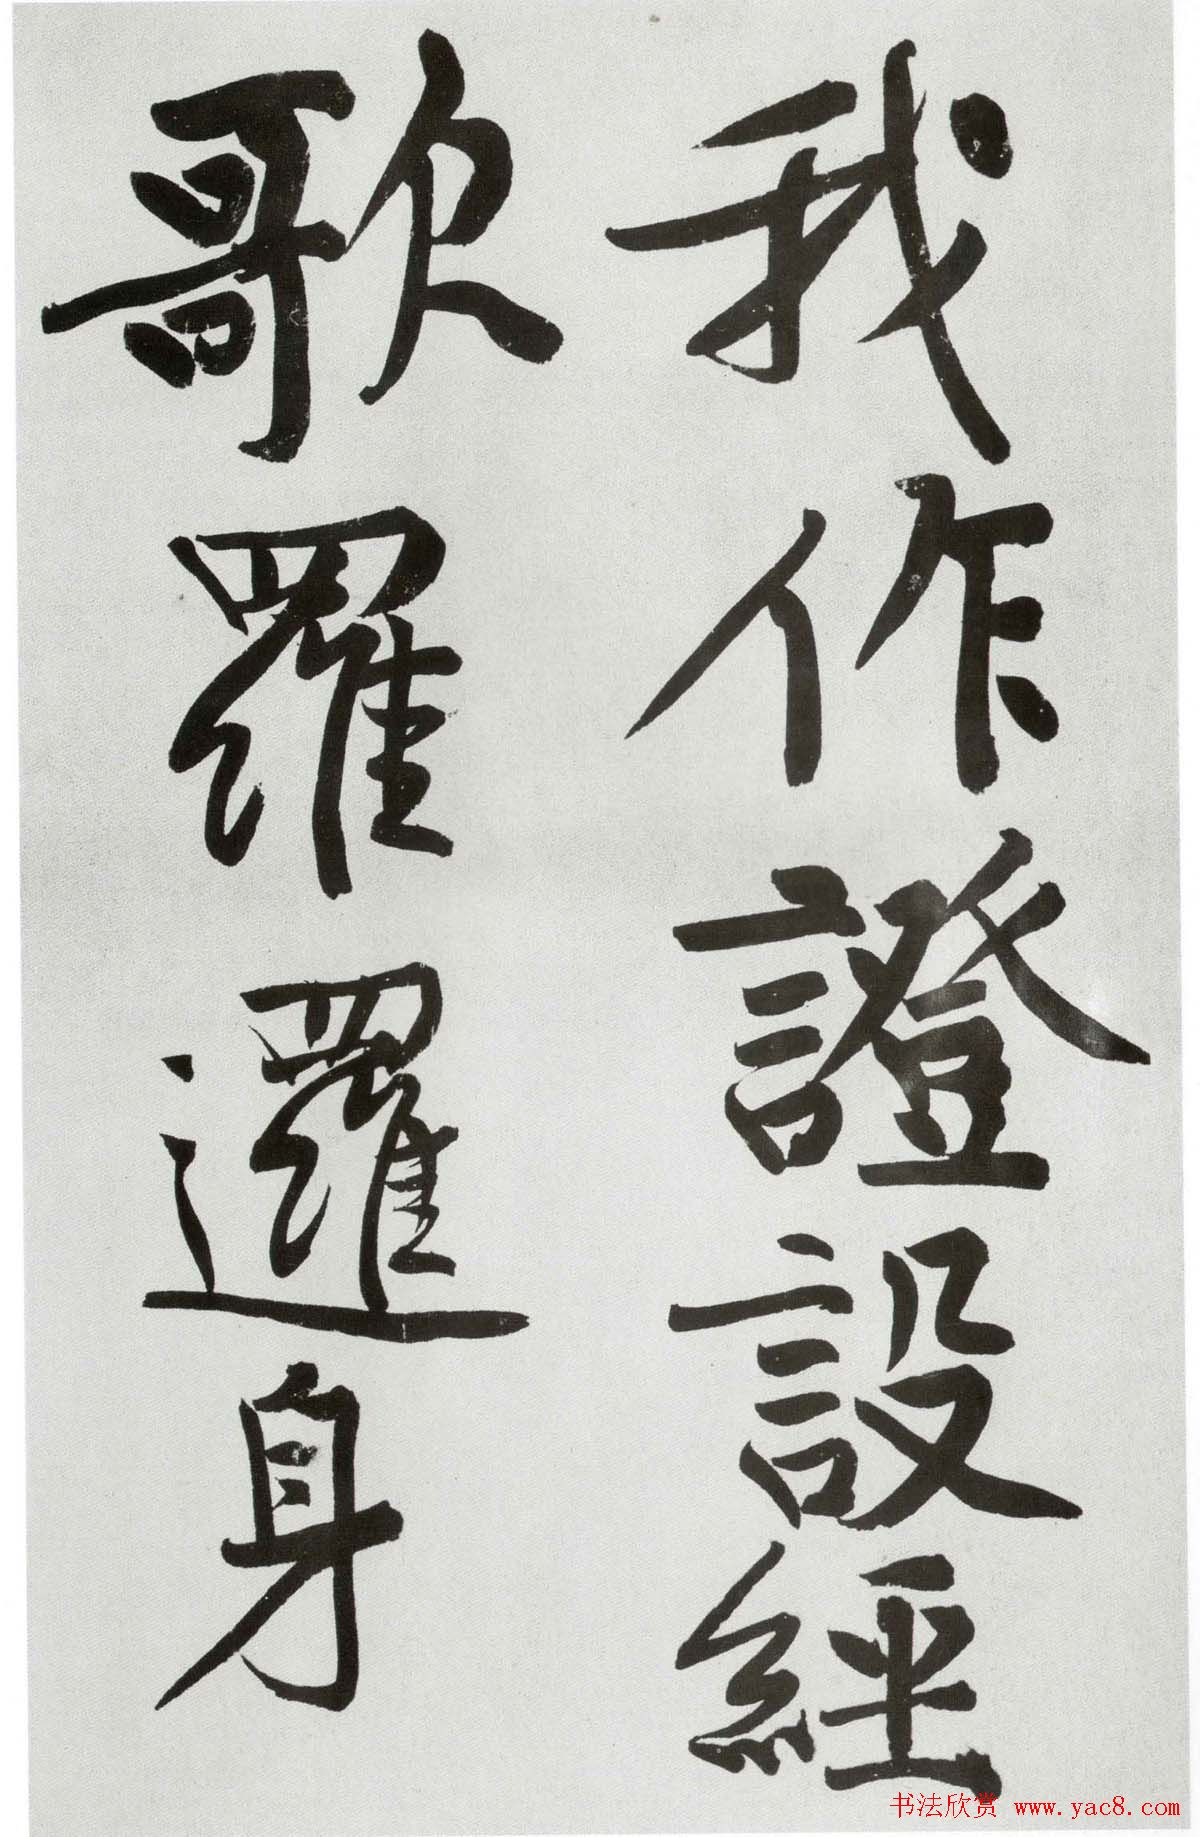 我作證設經
歌羅邏身
书法欣赏 www.yac8.com